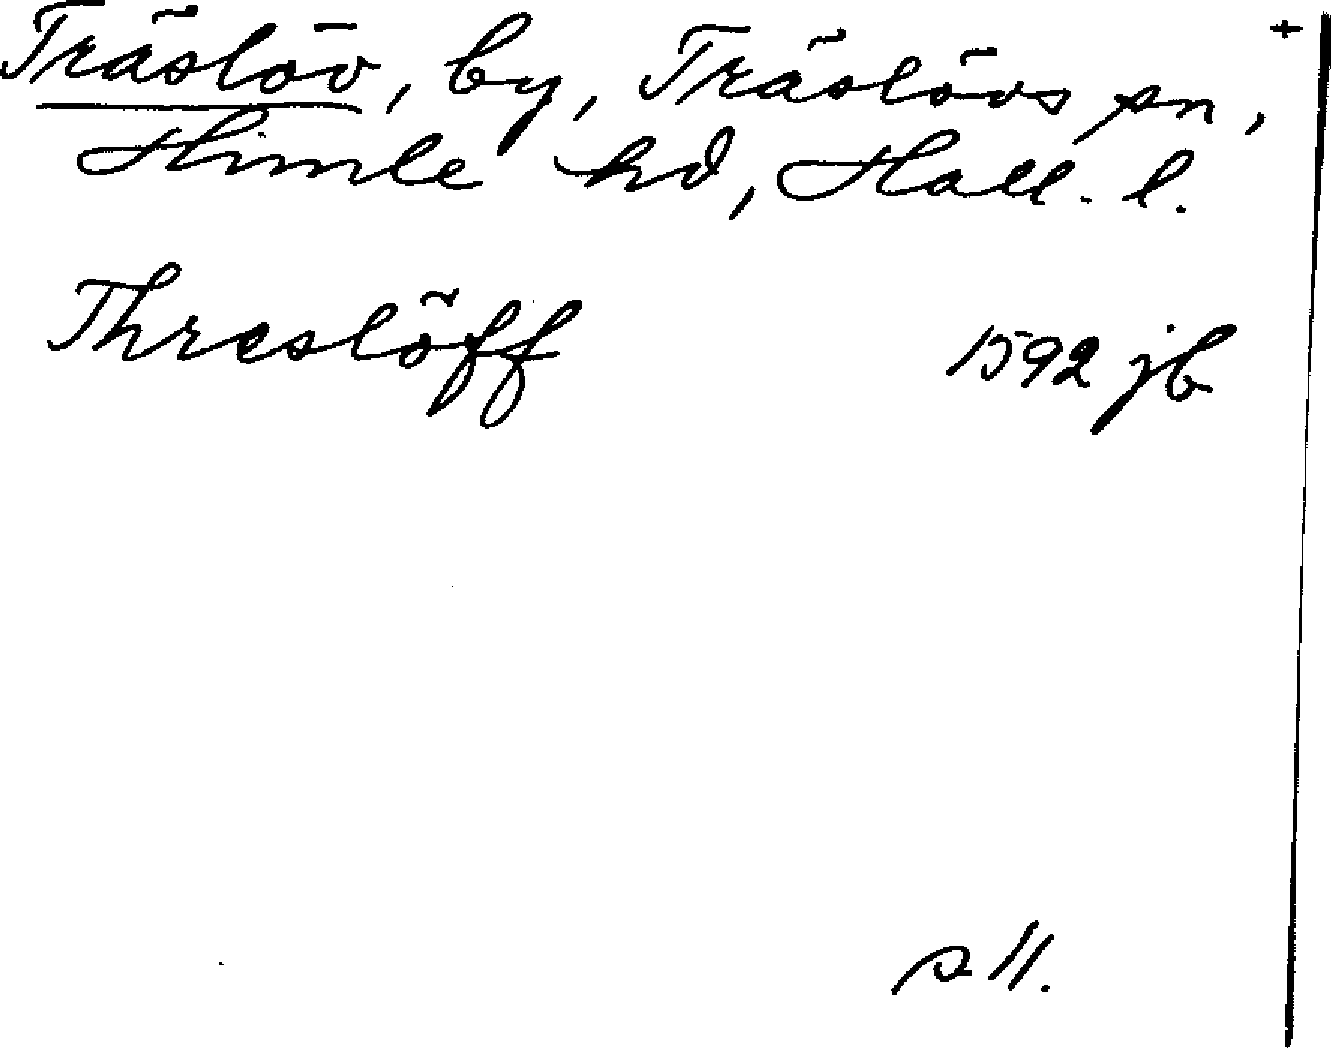 +
Träslöv, by, Träslövs sn,
Himle hd, Hall. l.
Threslöff 1592 jb
s 11.